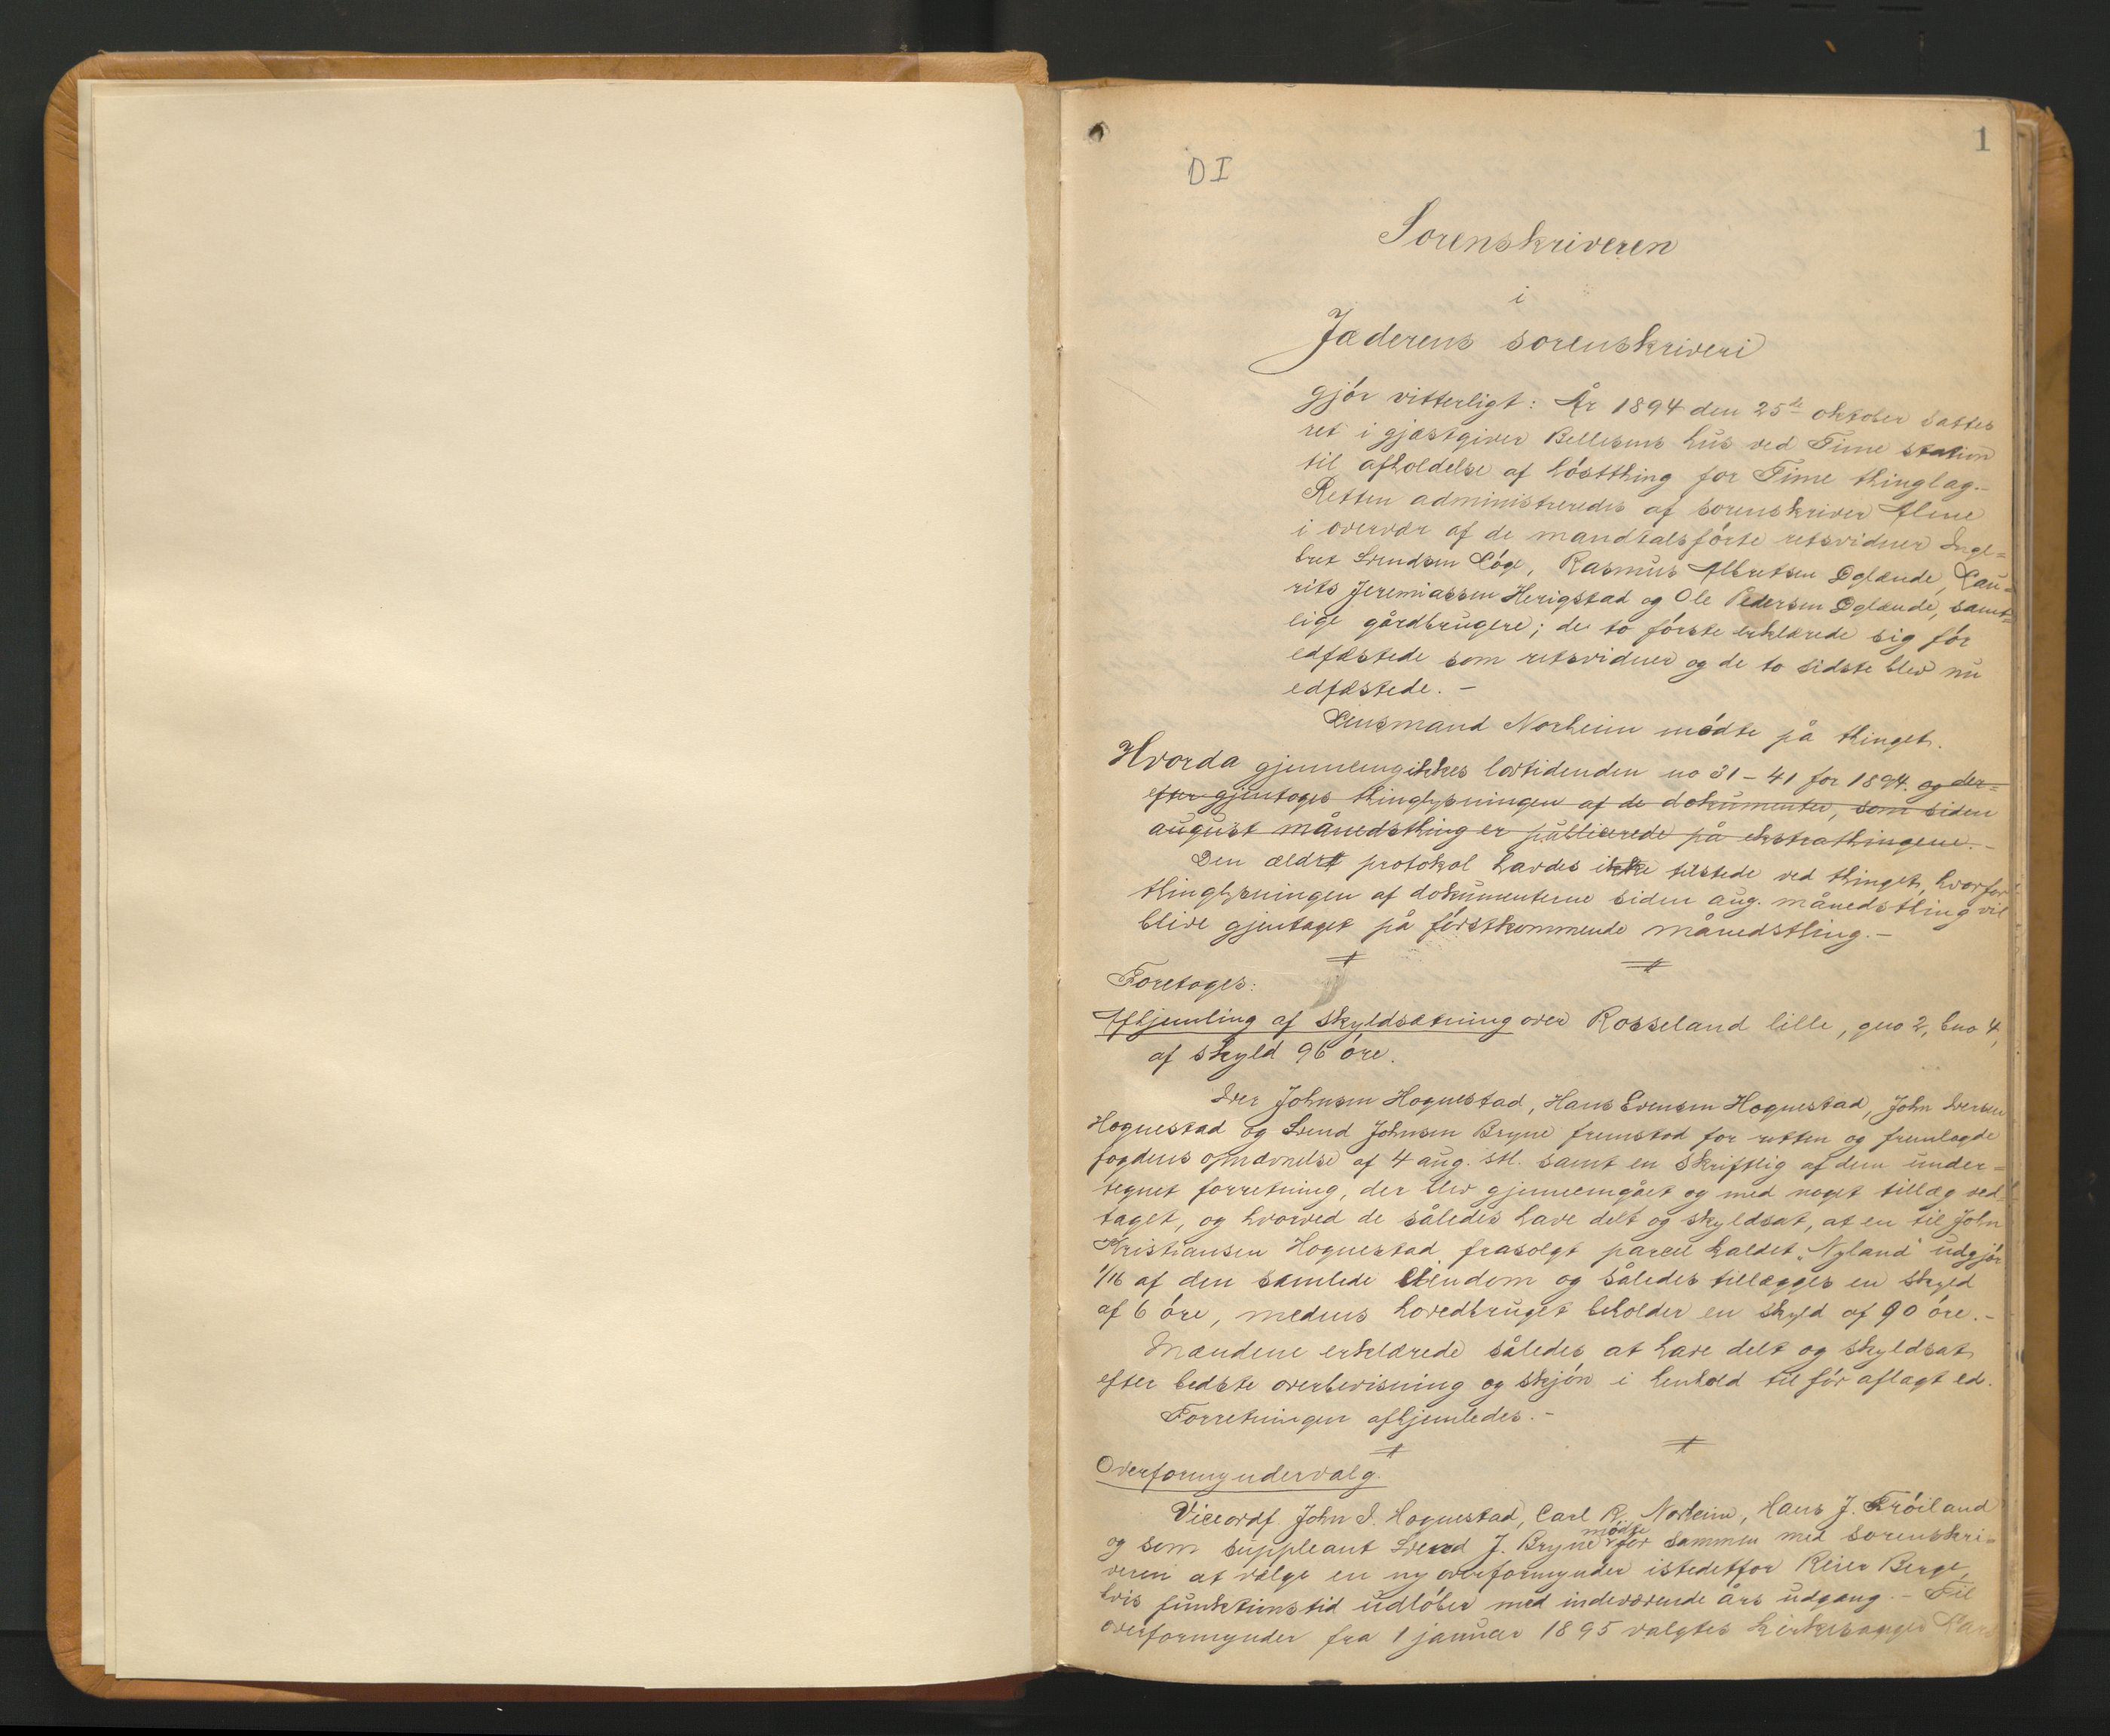 1
D I
Sorenskriveren
i
Jæderens sorenskriveri
gjór vitterligt: År 1894 den 25de oktober sattes
ret i gjæstgiver Bellesens hus ved Time station
til afholdelse af hóstthing for Time thinglag.-
Retten administreredes af sorenskriver
i overvær af de mandtalsfórte retsvidner Inge=
bret Svendsen Lóge, Rasmus Albretsen Oglænde, Lau=
rits Jeremiassen Herigstad og Ole Pedersen Oglænde, samt=
lige gårdbrugere; de to fórste erklærede sig fór
edfæstede som retsvidner og de to sidste blev nu
edfæstede. -
Lensmand Norheim módte på thinget.
Hvorda gjennemgikkes lovtidenden no 31-41 for 1894. og der=
efter gjentoges thinglysningen af de dokumenter, som siden
august månedsthing er publicerede på ekstrathingene.-
Den ældre protokol havdes ikke tilstede ved thinget, hvorfor
thinglysningen af dokumenterne siden aug. månedsthing vil
blive gjentaget på fórstkommende månedsthing.-
Foretoges:
Afhjemling af skyldsætning over Rosseland lille, gno 2, bno 4,
af skyld 96 óre.
Iver Johnsen Hognestad, Hans Evensen Hognestad, John Iversen
Hognestad og Svend Johnsen Bryne fremstod for retten og fremlagde
fogdens opnævnelse af 4 aug. stl. samt en skriftlig af dem under=
tegnet forretning, der blev gjennemgået og med noget tillæg ved=
taget, og hvorved de således have delt og skyldsat, at en til John
Kristiansen Hognestad frasolgt parcel kaldet „Nyland" udgjór
1/16 af den samlede eiendom og således tillægges en skyld
af 6 óre, medens hovedbruget beholder en skyld af 90 óre.-
Mændene erklærede således at have delt og skyldsat
efter bedste overbevisning og skjón i henhold til fór aflagt ed.
Forretningen afhjemledes.-
Overformyndervalg.
Viceordf. John I. Hognestad, Carl R. Norheim, Hans J. Fróiland
og som suppleant Svend J. Bryne módte for sammen med sorenskri=
veren at vælge en ny overformynder istedetfor Reier Berge,
hvis funktionstid udlóber med indeværende års udgang.- Til
overformynder fra 1 januar 1895 valgtes kirkesanger Lars